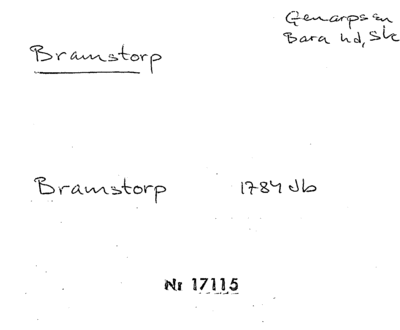 Genarps sn
Bara hd, Sk
Bramstorp
Bramstorp 1784 Jb
Nr 17115